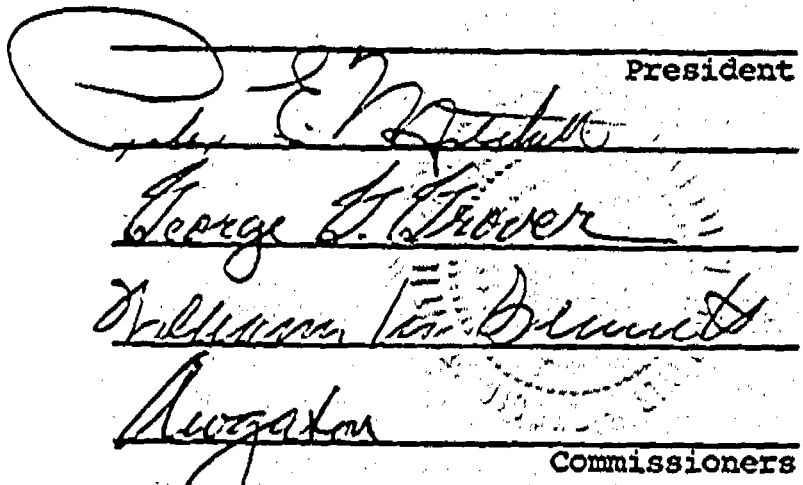 President
E. Mitchell
George G. Grover
William M. Bennett
Commissioners